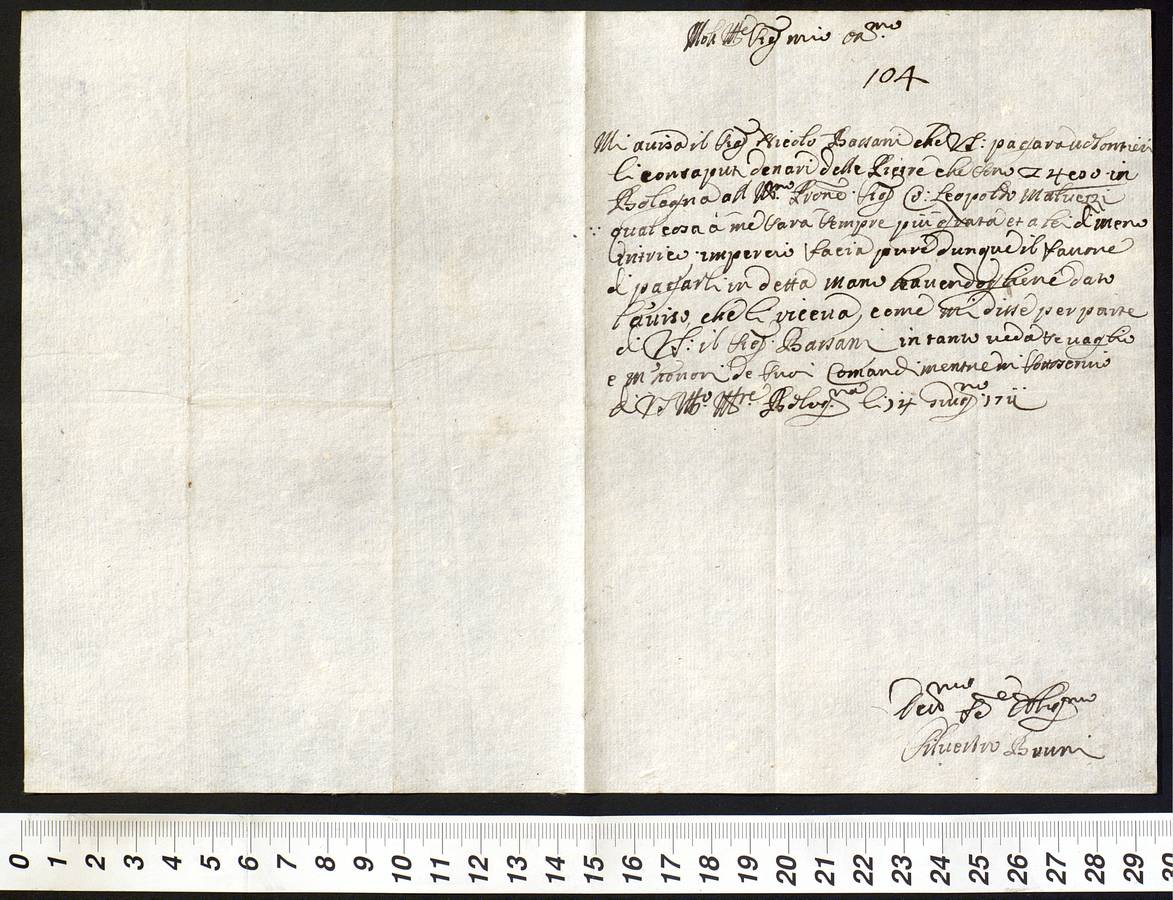 Molt Ill.re Sig.r mio oss.mo
104
Mi avisa il Sig.r Nicolo Bassani che VS: pagara volontieri
li consaputi denari delle Pietre che sono in
Bologna all Pron̄e Sig.r Co: Leopoldo Malvezzi
qual cosa à me sara sempre più grata et a lei di meno
intrico imperciò facia pure dunque il favore
di pagarli in detta mano havendogliene dato
l'aviso, che li riceva, come mi disse per parte
di VS: il Sig.r Bassani in tanto veda se vaglio
e m'honori de suoi Comandi mentre mi sottoscrivo
di VS Molto Ill.re Bolog.na li 14 giug.no 1711
Dev.mo Se.e Oblig.mo
Silvestro Bruni
0 1 2 3 4 5 6 7 8 9 10 11 12 13 14 15 16 17 18 19 20 21 22 23 24 25 26 27 28 29 30